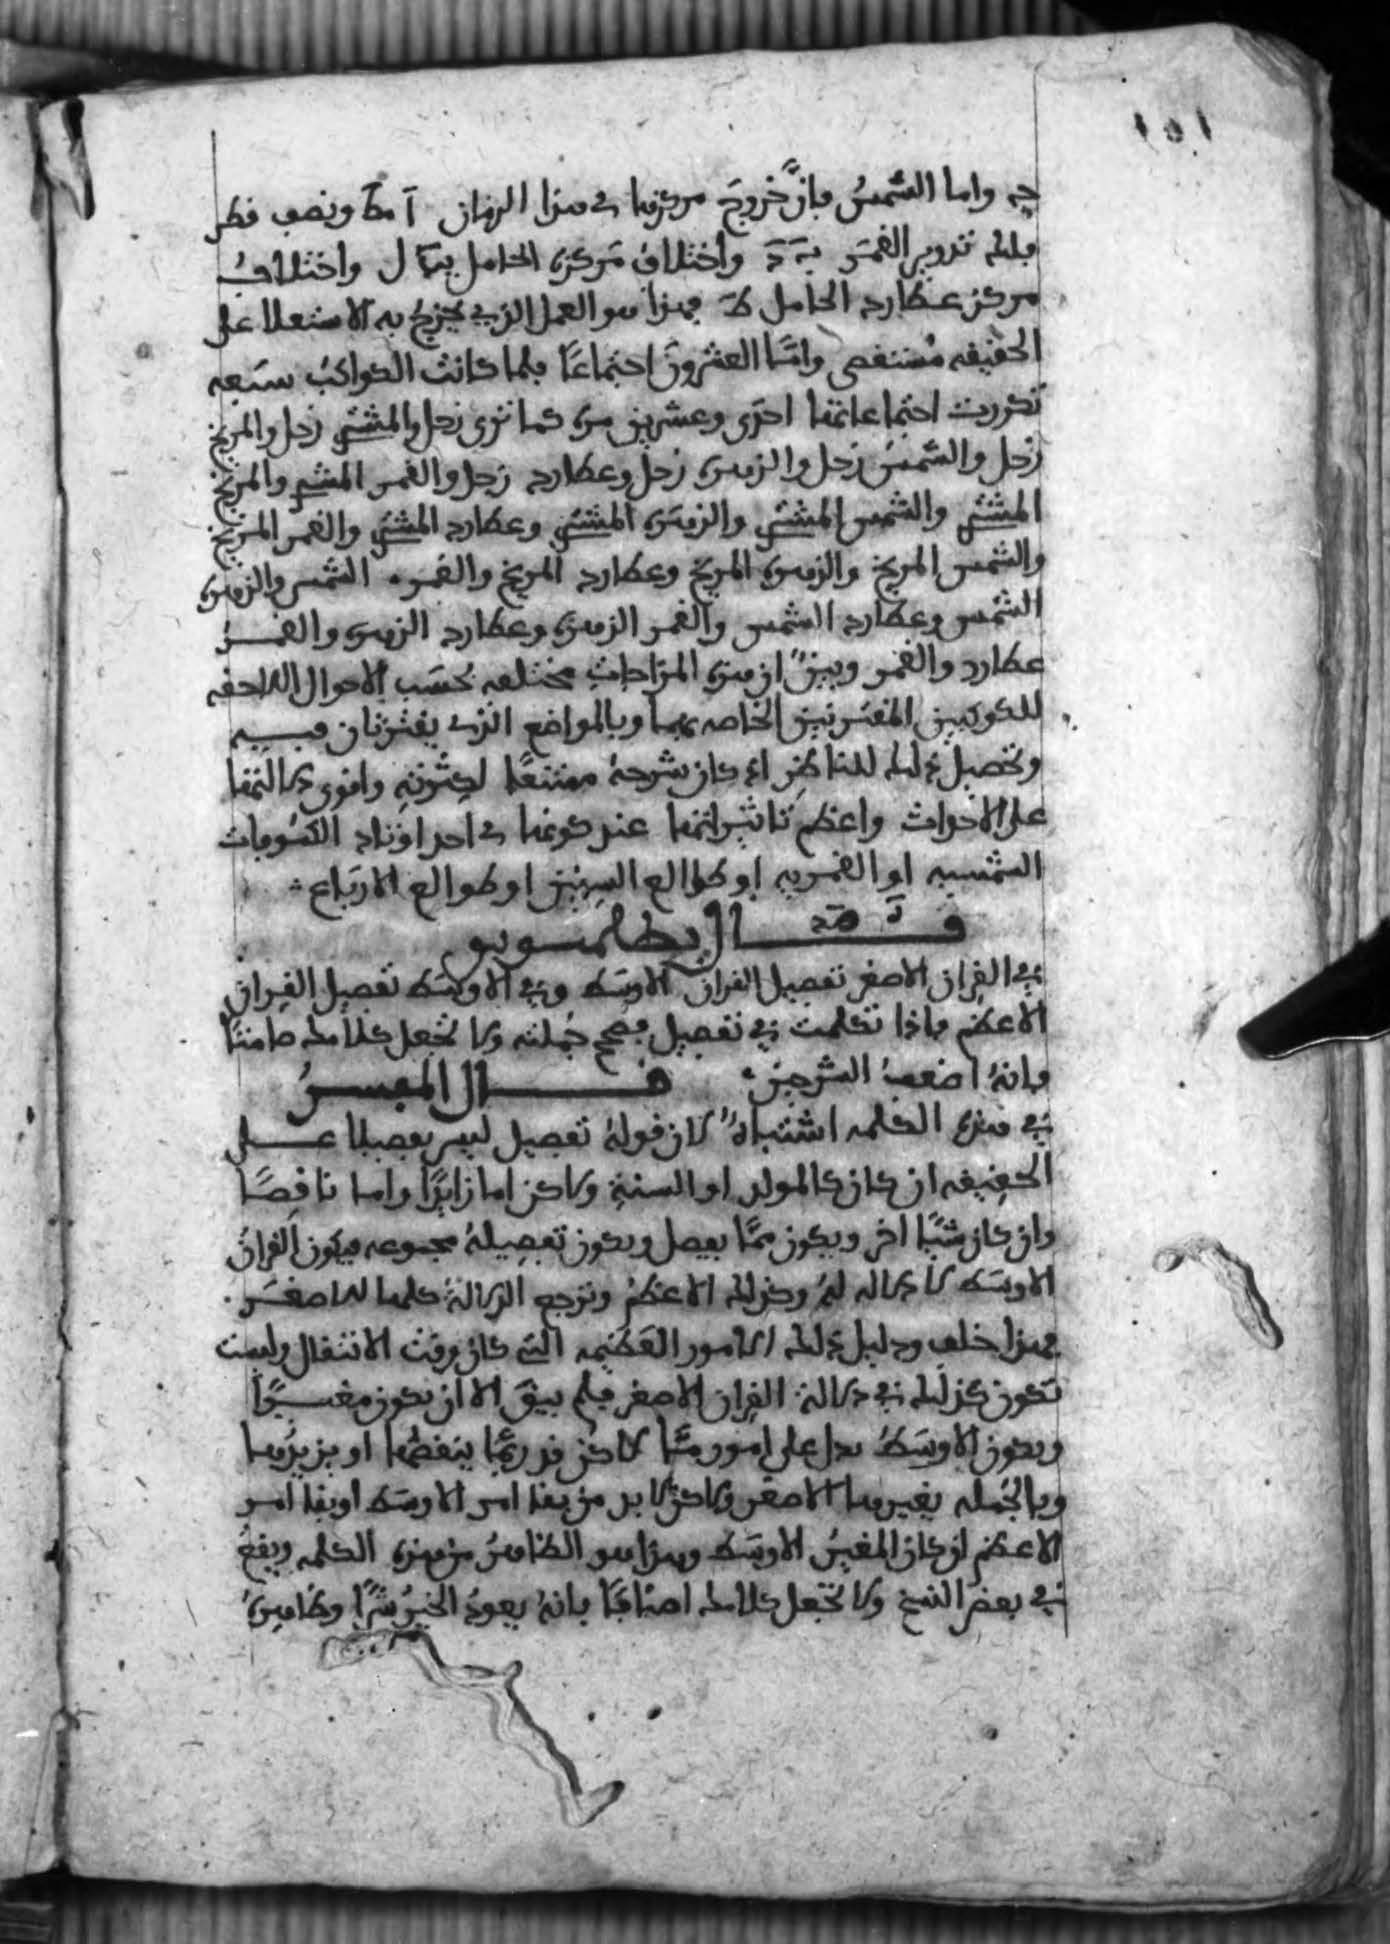 ١٥١
جه واما الشمس فان خروج مركزها فى هذا الزمان ا مط ونصف قطر
فلك تدوير القمر واختلاف مركزه الحامل ل واختلاف
مركز عطارد الحامل فهذا هو العمل الذي يخرج به الاستعلا على
الحقيقه مستقصى واما العشرون اجتماعا فلما كانت الكواكب سبعه
تكررت اجتماعاتها احدى وعشرين مره كما ترى زحل والمشتري زحل والمريخ
زحل والشمس زحل والزهره زحل وعطارد زحل والقمر المشتري والمريخ
المشتري والشمس المشتري والزهره المشتري وعطارد المشتري والقمر المريخ
والشمس المريخ والزهره المريخ وعطارد المريخ والقمر الشمس والزهره
الشمس وعطارد الشمس والقمر الزهره وعطارد الزهره والقمر
عطارد والقمر وبين ان هذه المزاجات مختلفه بحسب الاحوال اللاحقه
للكوكبين المقترنين الخاصه بهما وبالمواضع الذى يقترنان فيه
وتحصيل ذلك للناظر اذ كان شرحه ممتنعا لكثرته واقوى دلالتها
على الاحداث واعظم تاثيراتها عند كونها فى احد اوتاد الكسوفات
الشمسيه او القمريه او طوالع السنين او طوالع الارباع
قال بطلميوس
في القران الاصغر تفصيل القران الاوسط وفي الاوسط تفصيل القران
الاعظم فاذا تكلمت في تفصيل فصحح جملته ولا تجعل كلامك صامتا
فانه اضعف الشرحين قال المفسر
في هذه الكلمه اشتباه لان قوله تفصيل ليس تفصيلا على
الحقيقه ان كان كالمولد او السنة ولاكن اما زايدا واما ناقصا
وان كان شيا اخر ويكون مما يفصل ويكون تفصيله مجموعه فيكون القران
الاوسط لا دلاله له وكذلك الاعظم وترجع الدلالة كلها للاصغر
فهذا خلف ودليل ذلك الامور العظيمه التي كان وقت الانتقال وليست
تكون كذلك في دلالة القران الاصغر فلم يبق الا ان يكون مغيرا
ويكون الاوسط يدل على امور ما لاكن قد ربما ينقصها او يزيدها
وبالجمله يغيرها الاصغر ولاكن لا بد من بقا امر الاوسط او بقا امر
الاعظم ان كان المغير الاوسط وهذا هو الظاهر من هذه الكلمه ويقع
في بعض النسخ ولا تجعل كلامك اضافا فانه يعود الخير شرا وظاهره